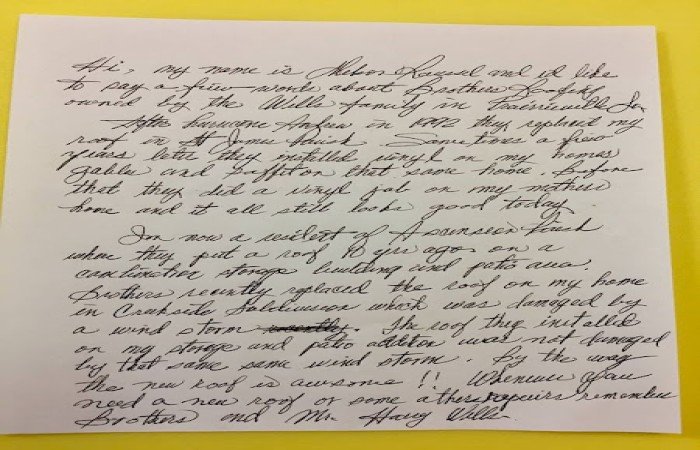 Hi, my name is and id like
to say a few words about Brothers Roofing
owned by the Wills family in Prairieville La
After hurricane Andrew in 1992 they replaced my
roof in St James Parish. Sometimes a few
years later they installed vinyl on my homes
gables and soffit on that same home. Before
that they did a vinyl job on my mothers
home and it all still looks good today.
Im now a resident of Ascension Parish
where they put a roof 10 yrs ago on a
combination storage building and patio area.
Brothers recently replaced the roof on my home
in Creekside Subdivision which was damaged by
a wind storm recently. The roof they installed
on my storage and patio addition was not damaged
by that same same wind storm. By the way
the new roof is awsome !! Whenever you
need a new roof or some other repairs remember
Brothers and Mr. Harry Wills.